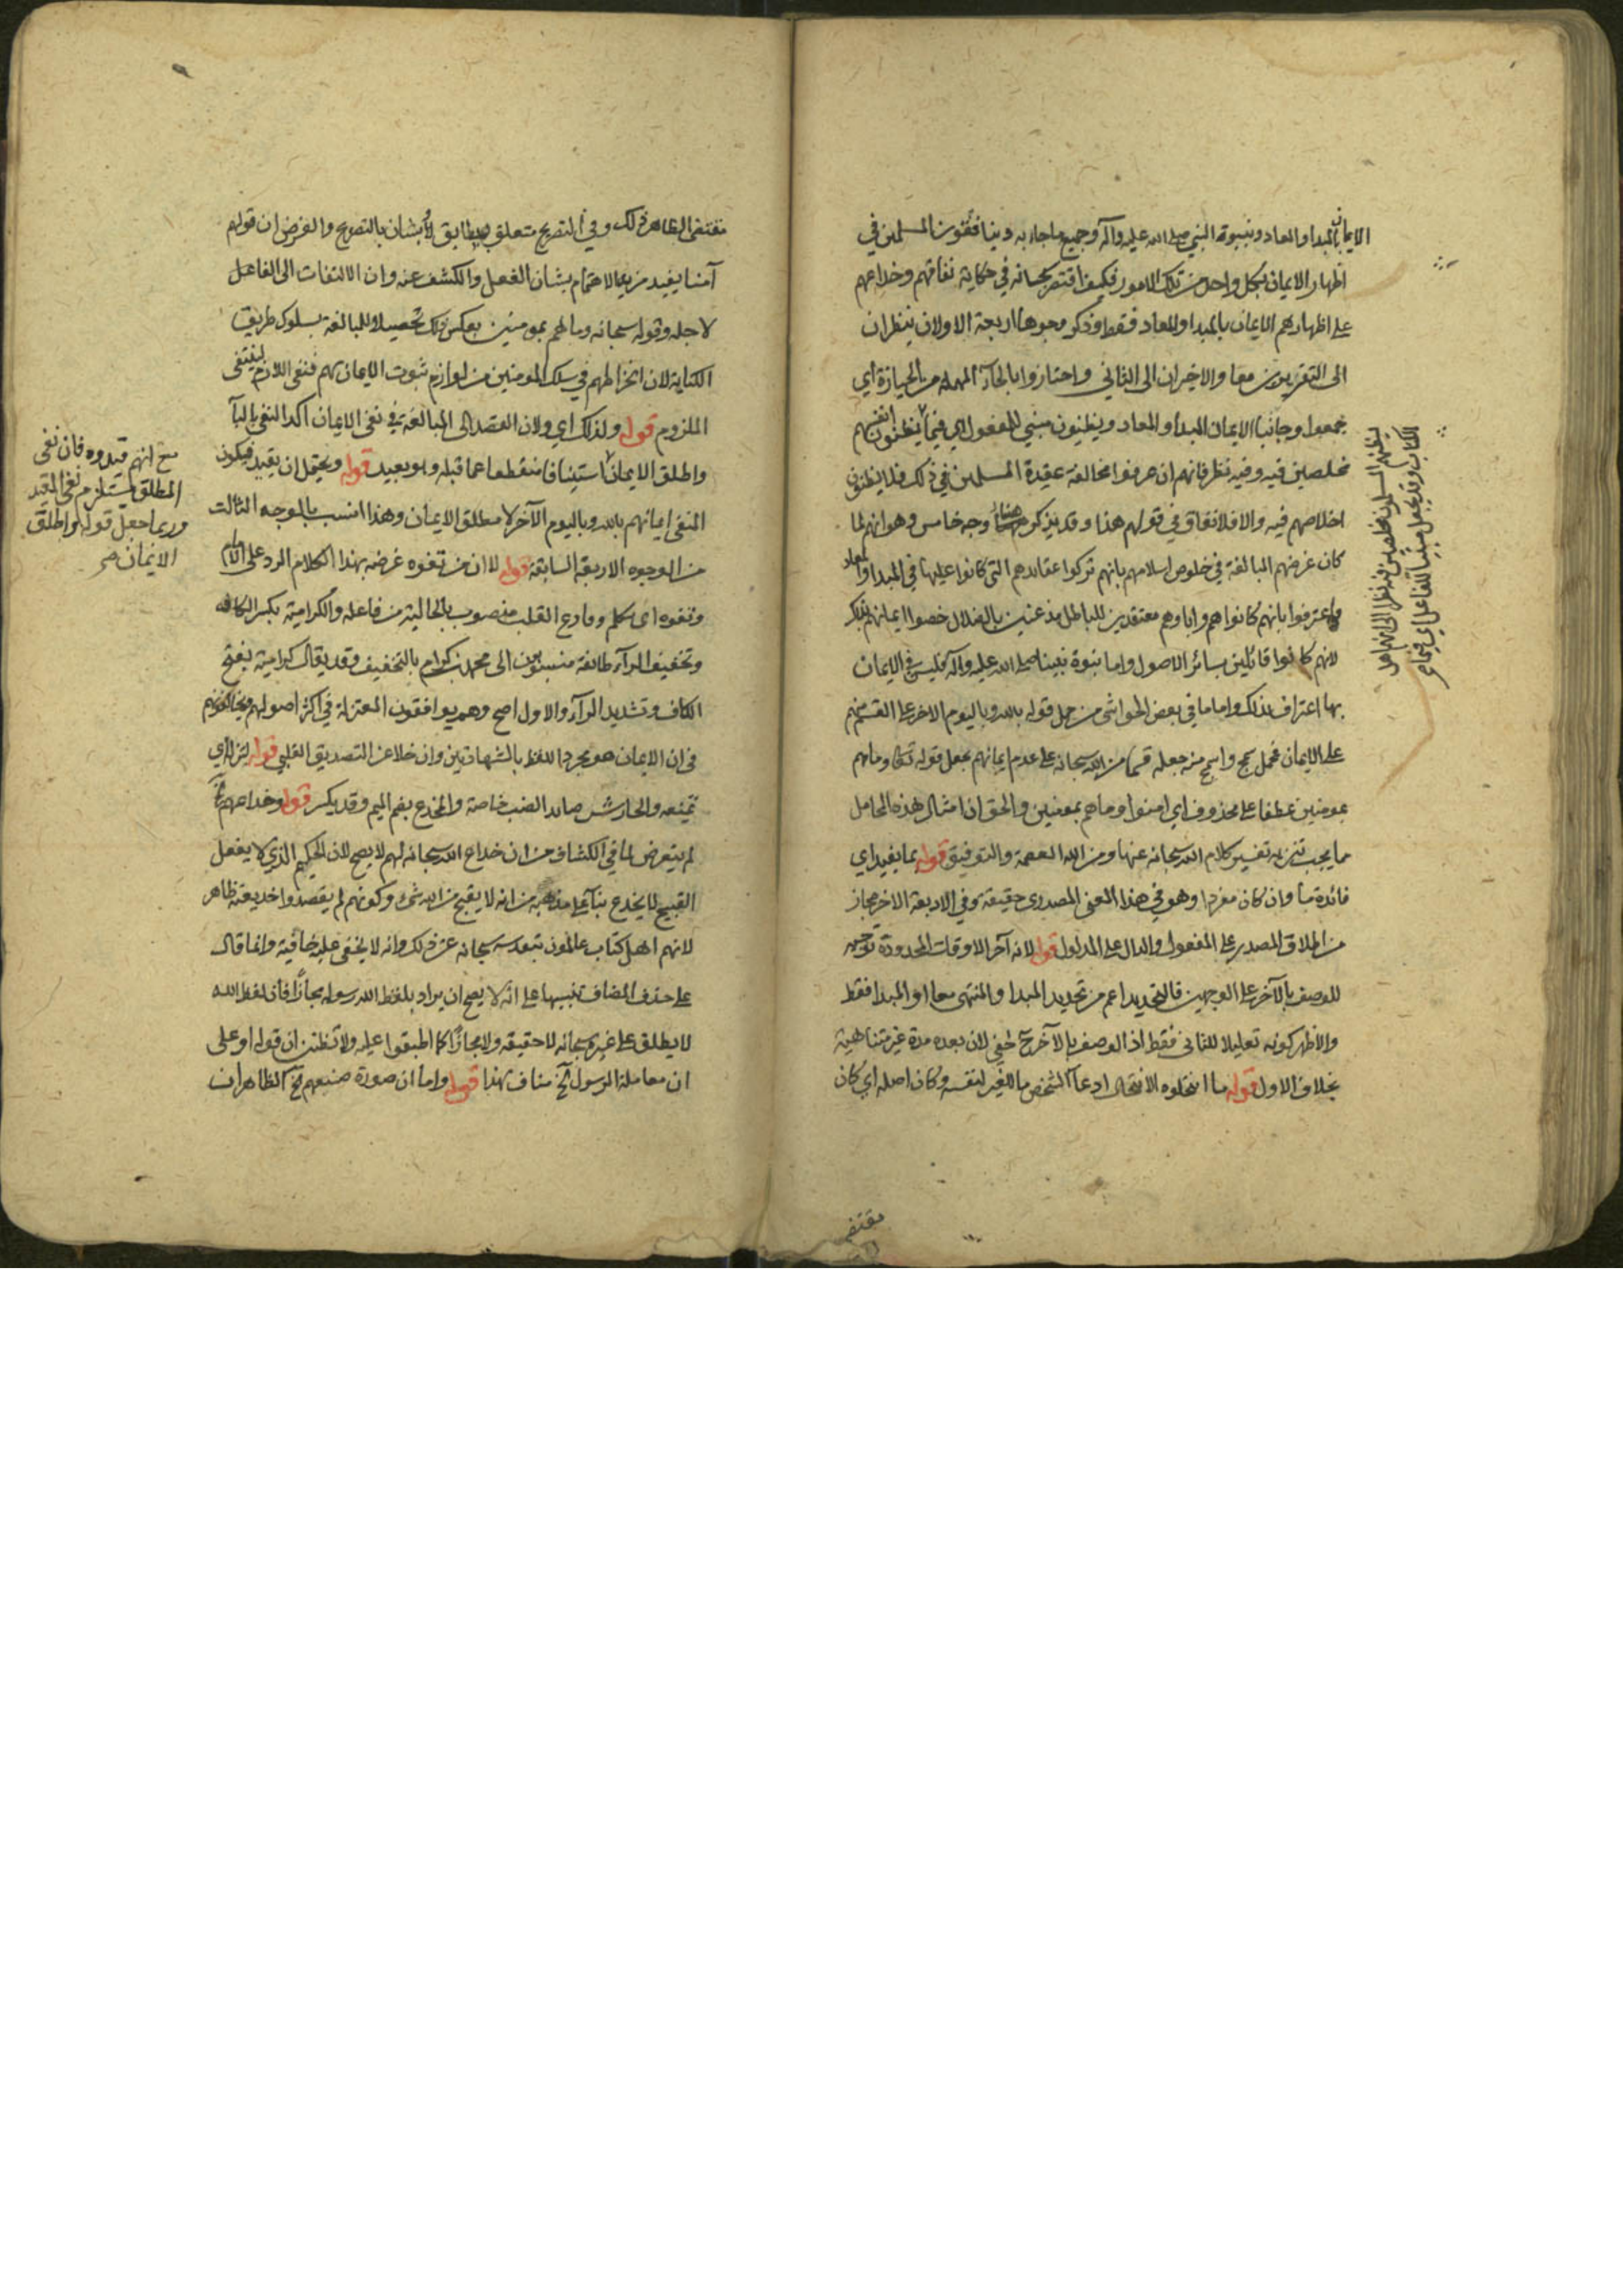 الايمان بالمبدا والمعاد ونبوة النبي صلى الله عليه وآله وجميع ما جاء به دينا فقوت المسلمين في
اظهار الايمان بكل واحد من تلك الامور فكيف اقتصر سبحانه في حكاية نفاقهم وخداعهم
على اظهارهم الايمان بالمبدا والمعاد فقط وذكر وجوها اربعة الاولان ينظران
الى التقريرين معا والاخيران الى الثاني واحتازوا بالحاء المهملة من الحيازة اي
جمعوا وجانبا الايمان المبدا والمعاد ويظنون مبني للمفعول اي فيما يظنون انفسهم
مخلصين فيه وفيه نظر فانهم ان عرفوا مخالفة عقيدة المسلمين في ذلك فلا يظنون
اخلاصهم فيه والا فلا نفاق في قولهم هذا وقد يذكر ههنا وجه خامس وهو انهم لما
كان غرضهم المبالغة في خلوص اسلامهم بانهم تركوا عقائدهم التي كانوا عليها في المبدا والمعاد
واعترفوا بانهم كانوا هم واباؤهم معتقدين للباطل مذعنين بالضلال خصوا ايمانهم بذكر
لانهم كانوا قائلين بسائر الاصول واما نبوة نبينا صلى الله عليه وآله فليس في الايمان
بها اعتراف بذلك واما ما في بعض الحواشي من حمل قوله بالله وباليوم الاخر على القسم منهم
على الايمان فمحل سمج واسمج منه جعله قسما من الله سبحانه على عدم ايمانهم بجعل قوله تعالى وما هم
بمومنين عطفا على محذوف اي امنوا وما هم بمومنين والحق ان امثال هذه المحامل
مما يجب تنزيه تفسير كلام الله سبحانه عنها ومن الله العصمة والتوفيق قوله بما يفيد اي
فائدة ما وان كان مفردا وهو في هذا المعنى المصدري حقيقة وفي الاربعة الاخر مجاز
من اطلاق المصدر على المفعول والدال على المدلول قوله لانه آخر الاوقات المحدودة توجيه
للوصف بالآخر على الوجهين فالتحديد اعم من تحديد المبدا والمنتهى معا او المبدا فقط
والاظهر كونه تعليلا للثاني فقط اذ الوصف بالآخر ح خفي لان بعده مدة غير متناهية
بخلاف الاول قوله ما انتحلوه الانتحال ادعاء الشخص ما للغير لنفسه وكان اصله اي كان
يظنهم المسلمون مخلصين فيه نظرا الى انهم اهل
الكتاب وقد يجعل مبنيا للفاعل اي
مقتضى
مقتضى الظاهر ذلك وفي التصريح متعلق بيطابق لا بشان بالتصريح والغرض ان قولهم
آمنا يفيد مزيد الاهتمام بشان الفعل والكشف عنه وان الالتفات الى الفاعل
لاجله وقوله سبحانه وما هم بمومنين بعكس ذلك تحصيلا للمبالغة بسلوك طريق
الكناية لان انخراطهم في سلك المومنين من لوازم ثبوت الايمان بهم فنفى اللازم لينتفي
الملزوم قوله ولذلك اي ولان القصد الى المبالغة في نفي الايمان اكد النفي بالباء
واطلق الايمان استينافا منقطعا عما قبله وهو بعيد قوله ويحتمل ان يقيد فيكون
المنفي ايمانهم بالله وباليوم الآخر لا مطلق الايمان وهذا انسب بالوجه الثالث
من الوجوه الاربعة السابقة قوله لا ان من تفوه غرضه بهذا الكلام الرد على الامام
وتفوه اي تكلم وفارغ القلب منصوب بالحالية من فاعله والكرامية بكسر الكاف
وتخفيف الراء طائفة منسوبون الى محمد بن كرام بالتخفيف وقد يقال كرامية بفتح
الكاف وتشديد الراء والاول اصح وهم يوافقون المعتزلة في اكثر اصولهم ويخالفونهم
في ان الايمان هو مجرد اللفظ بالشهادتين وان خلا عن التصديق القلبي قوله
تمنعه والحارش صائد الضب خاصة والمخدع بضم الميم وقد يكسر قوله وخداعهم الخ
لم يتعرض لما في الكشاف من ان خداع الله سبحانه لهم لا يصح لان الحكيم الذي لا يفعل
القبيح لا يخدع بناء على مذهبه من انه لا يقبح من الله شيء وكونهم لم يقصدوا خديعته ظاهر
لانهم اهل كتاب عالمون بتقدسه سبحانه عن ذلك وانه لا يخفى عليه خافية وانما قال
على حذف المضاف تنبيها على انه لا يصح ان يراد بلفظ الله رسوله مجازا فان لفظ الله
لا يطلق على غيره سبحانه لا حقيقة ولا مجازا كما اطبقوا عليه ولا تظنن ان قوله او على
ان معاملة الرسول الخ مناف بهذا قوله واما ان صورة صنيعهم الخ الظاهر ان
مع انهم قيدوه فان نفي
المطلق يستلزم نفي المقيد
وربما جعل قوله واطلق
الايمان صح